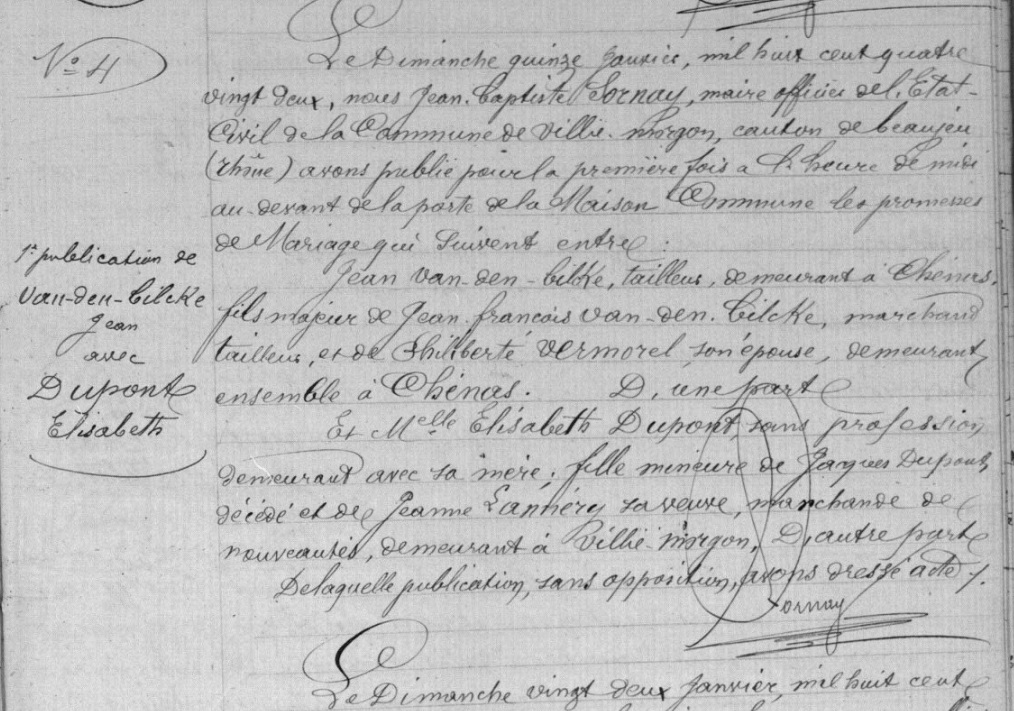 N° 4
Le Dimanche quinze Janvier, mil huit cent quatre
vingt deux, nous Jean-Baptiste Sornay, maire officier de l'Etat-
Civil de la Commune de Villié-Morgon, canton de beaujeu
(rhône) avons publié pour la première fois a l'heure de midi
au-devant de la porte de la Maison Commune les promesses
de Mariage qui suivent entre :
1re publication de
Van-den-bilcke
Jean
avec
Dupont
Elisabeth
Jean Van-den-bilcke, tailleur, demeurant à Chénas,
fils majeur de Jean-françois Van-den-bilcke, marchand
tailleur, et de Philiberte Vermorel son épouse, demeurant
ensemble à Chénas. D'une part
Et Melle Elisabeth Dupont, sans profession,
demeurant avec sa mère ; fille mineure de Jacques Dupont,
décédé et de Jeanne Lannéry sa veuve, marchande de
nouveautés, demeurant à Villié-Morgon, D'autre part
De laquelle publication, sans opposition, avons dressé acte ./.
Sornay
Le Dimanche vingt deux Janvier, mil huit cent